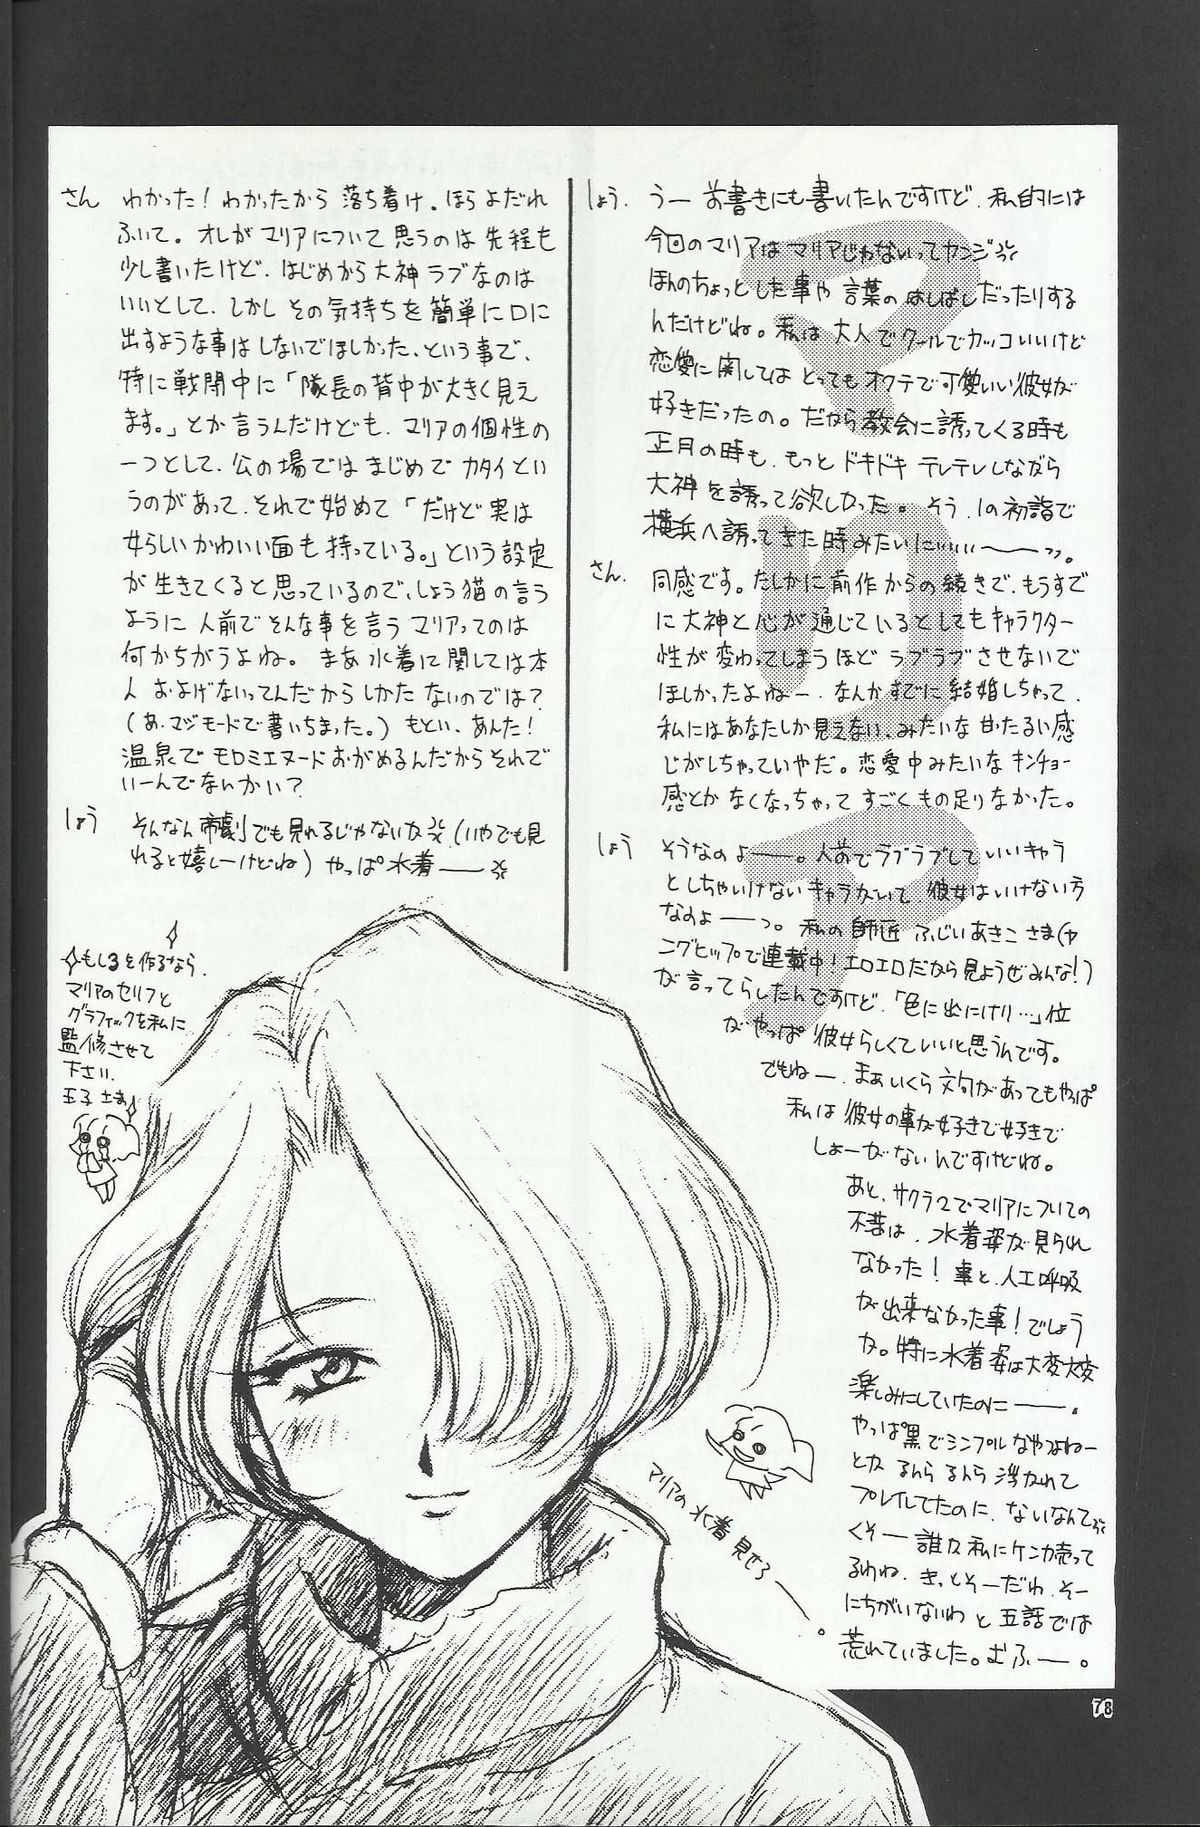 マリア
しょう. うー 前書きにも書いたんですけど、私的には
今回のマリアはマリアじゃないってカンジ
ほんのちょっとした事や言葉のはしばしだったりする
んだけどね。私は大人でクールでカッコいいけど
恋愛に関してはとってもオクテで可愛いい彼女が
好きだったの。だから教会に誘ってくる時も
正月の時も、もっとドキドキテレテレしながら
大神を誘って欲しかった。そう、1の初詣で
横浜へ誘ってきた時みたいに……ーーっ。
さん. 同感です。たしかに前作からの続きで、もうすで
に大神と心が通じているとしてもキャラクター
性が変わってしまうほどラブラブさせないで
ほしかったよねー、なんかすでに結婚しちゃって、
私にはあなたしか見えない、みたいな甘たるい感
じがしちゃっていやだ。恋愛中みたいなキンチョー
感とかなくなっちゃってすごくもの足りなかった。
しょう そうなのよーー。人前でラブラブしていいキャラ
としちゃいけないキャラがいて、彼女はいけない方
なのよーーっ。私の師匠ふじいあきこさま(ヤ
ングヒップで連載中！エロエロだから見ようぜみんな！)
が言ってらしたんですけど、「色に出にけり…」位
がやっぱ彼女らしくていいと思うんです。
でもねー、まぁいくら文句があってもやっぱ
私は彼女の事が好きで好きで
しょーがないんですけどね。
あと、サクラ2でマリアについての
不満は、水着姿が見られ
なかった！事と、人工呼吸
が出来なかった事！でしょう
か。特に水着姿は大変大変
楽しみにしていたのにーー。
やっぱ黒でシンプルなやつよねー
とか るんらるんら浮かれて
プレイしてたのに、ないなんて
くそー誰か私にケンカ売って
るわね、きっとそーだわ、そー
にちがいないわと五話では
荒れていました。むふー。
さん わかった！わかったから落ち着け。ほらよだれ
ふいて。オレがマリアについて思うのは先程も
少し書いたけど、はじめから大神ラブなのは
いいとして、しかしその気持ちを簡単に口に
出すような事はしないでほしかった、という事で、
特に戦闘中に「隊長の背中が大きく見え
ます。」とか言うんだけども、マリアの個性の
一つとして、公の場ではまじめでカタイとい
うのがあって、それで始めて「だけど実は
女らしいかわいい面も持っている。」という設定
が生きてくると思っているので、しょう猫の言う
ように人前でそんな事を言うマリアってのは
何かちがうよね。まあ水着に関しては本
人およげないってんだからしかたないのでは？
(あ、マジモードで書いちまった。)もとい、あんた！
温泉でモロミエヌードおがめるんだからそれで
いーんでないかい？
しょう そんなん市劇でも見れるじゃないか(いやでも見
れると嬉しーけどね)やっぱ水着ーー
もし3を作るなら、
マリアのセリフと
グラフィックを私に
監修させて
下さい、
王子さま
マリアの水着見せろーー。
78